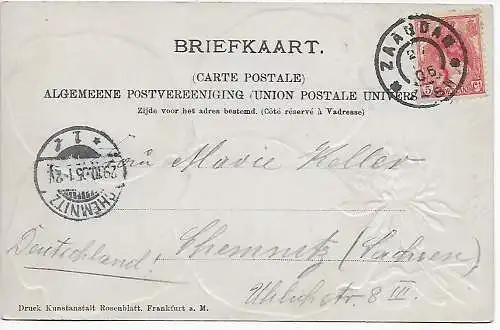 BRIEFKAART.
(CARTE POSTALE)
ALGEMEENE POSTVEREENIGING (UNION POSTALE UNIVERS
Zijde voor het adres bestemd. (Côté réservé à l'adresse)
ZAANDAM
CHEMNITZ
29.10.05.1-2
Frau Marie Keller
Chemnitz (Sachsen)
Deutschland.
Uhlichstr. 8 III.
Druck Kunstanstalt Rosenblatt. Frankfurt a. M.